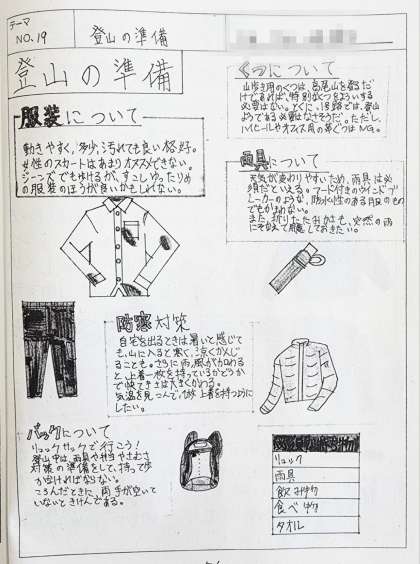 テーマ
NO.19 登山の準備
登山の準備
服装について
動きやすく、多少汚れても良い格好。
女性のスカートはあまりオススメできない。
ジーンズでもゆけるが、すこしゆったりめ
の服装のほうが良いかもしれない。
くつについて
山歩き用のくつは、高尾山を登るだ
けであれば、特別なくつをようい する
必要はない。とくに、1号路では、登山
ようである必要はなさそうだ。ただし、
ハイヒールやオフィス用の革ぐつはNG。
雨具について
天気が変わりやすいため、雨具は必
須だといえる。フード付きのウインドブ
レーカーのような、防水性のある服のもの
でもかまわない。
また、折りたたみかさも、突然の雨
にそなえて用意しておきたい。
防寒対策
自宅を出るときは暑いと感じて
も、山に入ると寒く、涼しくかんじ
ることも。さらに雨、風が加わる
と、上着一枚を持っているかどうか
で快てきさは大きくかわる。
気温を見こんで、1枚上着を持つように
したい。
バックについて
リュックサックで行こう!
登山中は、雨具や弁当やさむさ
対策の準備をして、持って歩
かなければならない。
ころんだときに、両手が空いて
いないときけんである。
リュック
雨具
飲み物
食べ物
タオル